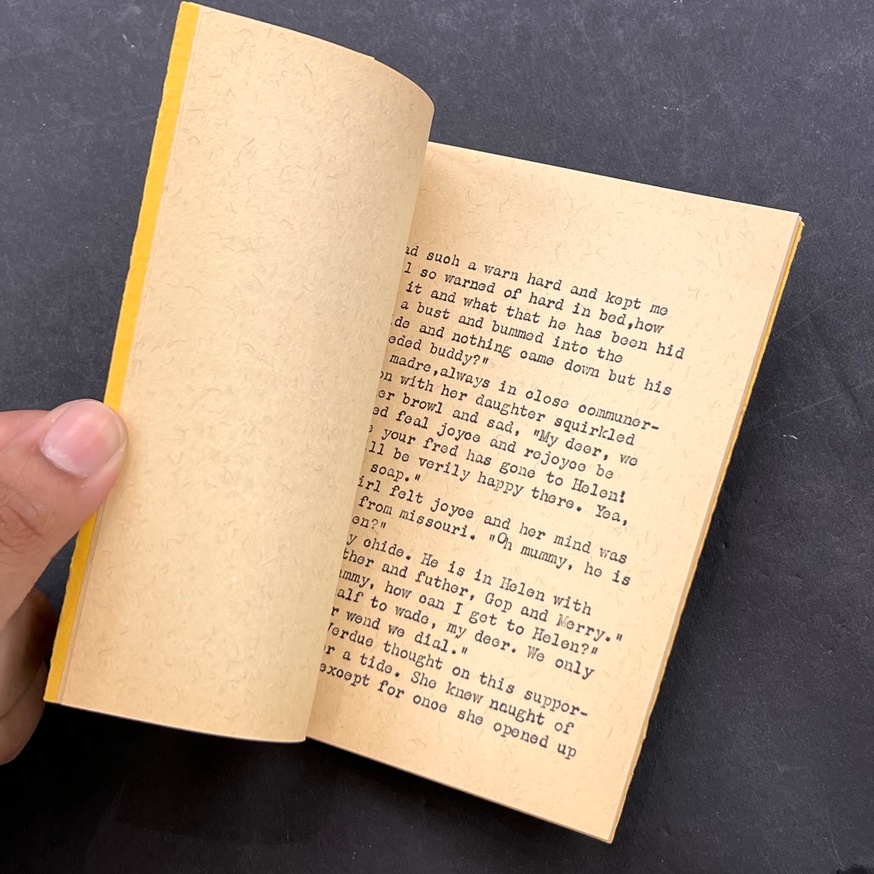 ad such a warn hard and kept me
l so warned of hard in bed,how
it and what that he has been hid
a bust and bummed into the
de and nothing came down but his
eded buddy?"
madre,always in close communer-
on with her daughter squirkled
er browl and sad, "My deer, we
ed feal joyce and rejoyce be
e your fred has gone to Helen!
ll be verily happy there. Yea,
soap."
irl felt joyce and her mind was
from missouri. "Oh mummy, he is
en?"
y chide. He is in Helen with
ther and futher, Gop and Merry."
ummy, how can I get to Helen?"
alf to wade, my deer. We only
r wend we dial."
Verdue thought on this suppor-
r a tide. She knew naught of
except for once she opened up